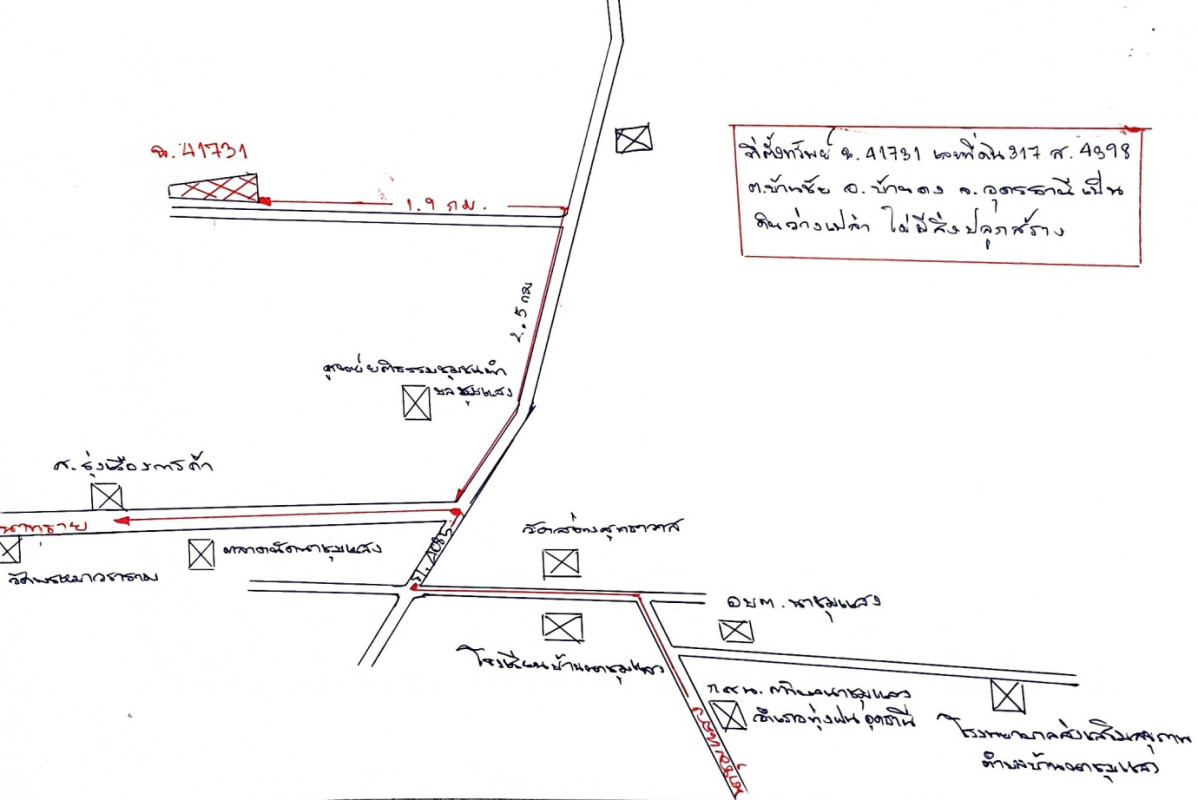 ฉ. 41731
1.9 กม.
ที่ตั้งทรัพย์ ฉ. 41731 เลขที่ดิน 317 ส. 4398
ต.บ้านชัย อ.บ้านดุง จ.อุดรธานี เป็น
ดินว่างเปล่า ไม่มีสิ่งปลูกสร้าง
2.5 กม
ศูนย์ยุติธรรมชุมชนตำ
บลชุมแสง
ส. รุ่งเรืองการค้า
นาทราย
ตลาดนัดนาชุมแสง
4085
วัดสว่างสุทธาวาส
อบต. นาชุมแสง
โรงเรียนบ้านนาชุมแสง
กศน. ตำบลนาชุมแสง
อำเภอทุ่งฝน อุดรธานี
โรงพยาบาลส่งเสริมสุขภาพ
ตำบลบ้านนาชุมแสง